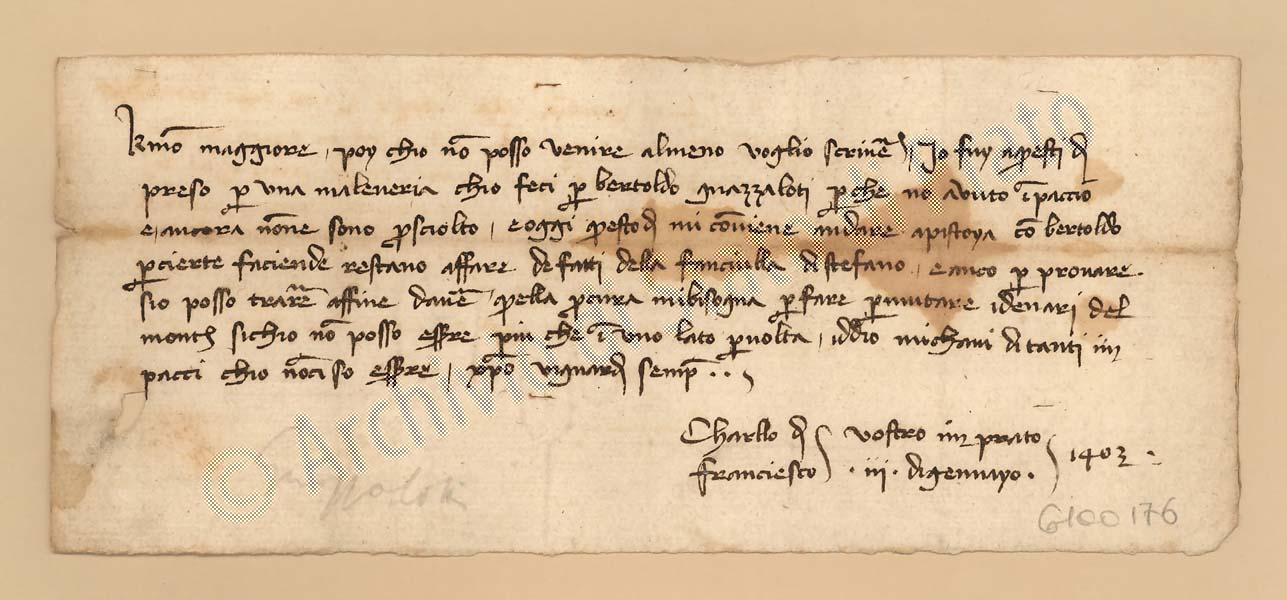 Kmo maggiore, poy chio no posso venire almeno voglio scrivere, Io fuy a questi dì
preso per una maleveria chio feci per bertoldo guazzaloti perche no avuto ipaccio
e, ancora none sono prosciolto, e oggi questo dì mi conviene andare apistoya co bertoldo
per cierte faciende restano affare de fatti dela fanciulla di stefano, e anco per provare
sio posso trarre affine d'avere quella procura mi bisogna per fare permutare idenari del
monte sichio no posso essere piu che i uno lato per volta, iddio mi chavi di tanti im
pacci chio noci so essere, xpo vi guardi sempre ..,
Charllo di vostro im prato
Franciesco . iii . digennayo . 1402 .
G100176
© Archivio di Stato Prato